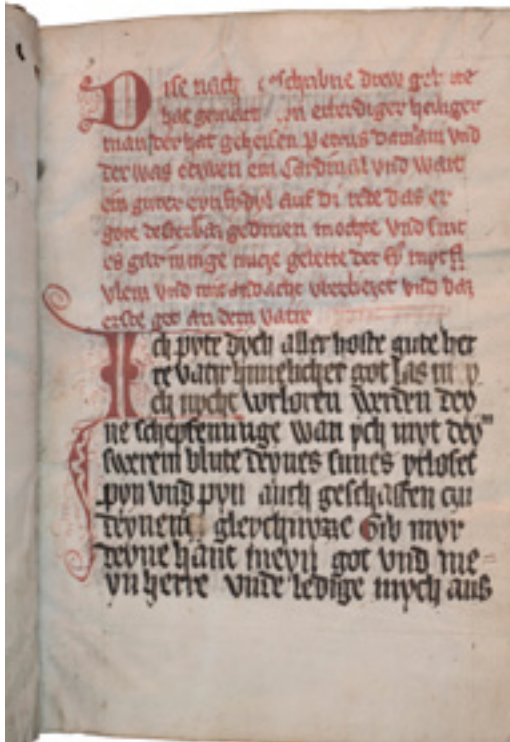 Dise nach eschribne drew gebete
hat gemacht ein erwerdiger heiliger
man der hat geheisen Petrus damiani vnd
der was ein Cardinal vnd wart
ein guter auf di rede das er
gote deste bas gedinen mochte Vnd sint
es gar nucze der sy myt
vleis vnd mit andacht vnd daz
erste get an den vatir
Ich pyte dych aller hoste gute her
re vatir himelischer got las m y
ch nycht vorloren werden dey
ne schepfenunge wan ych myt dey
swerem blute deynes sunes yrloset
pyn vnd pyn auch geschaffen czu
deynem gleychnuze Gib myr
deyne hant meyn got vnd me-
yn herre vnde ledige mych aus